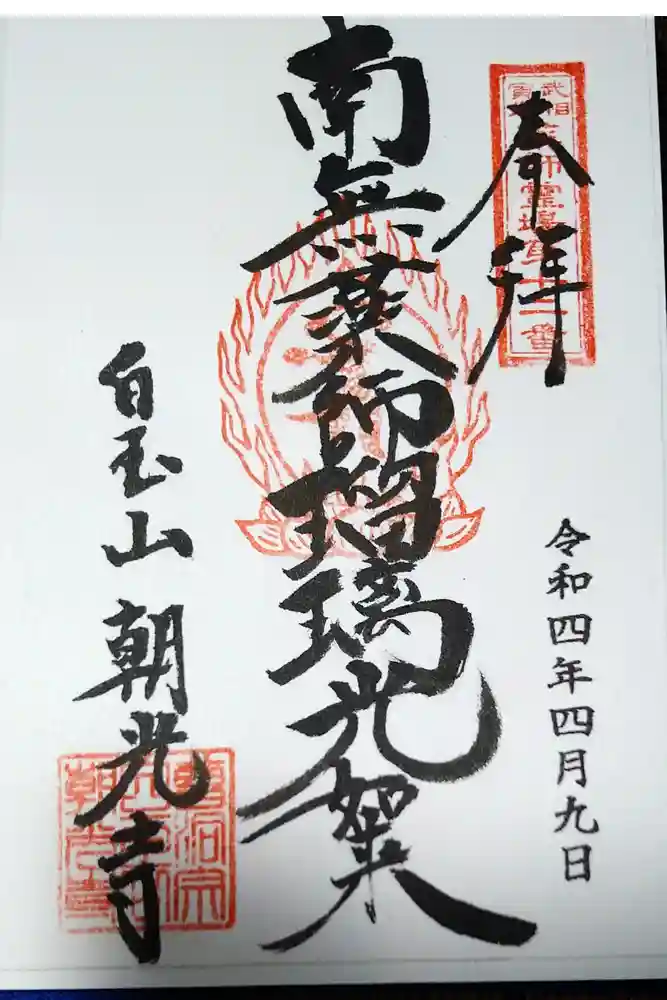 奉拝
武相
師霊場第十
番
令和四年四月九日
南無薬師瑠璃光如来
白玉山 朝光寺
曹洞宗
朝光寺